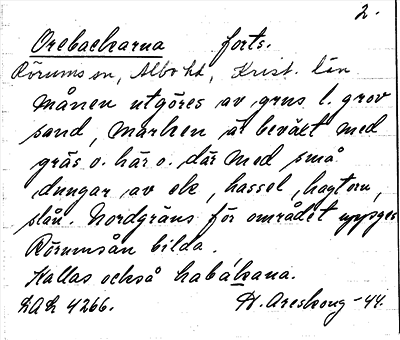 2.
Orebackarna forts.
Rörums sn, Albo hd, Krist. län
Månen utgöres av grus l. grov
sand, marken är beväxt med
gräs o. här o. där med små
dungar av ek, hassel, hagtorn,
slån. Nordgräns för området uppges
Rörumsån bilda.
Kallas också habákana.
LAL 4266. H. Areskoug -44.